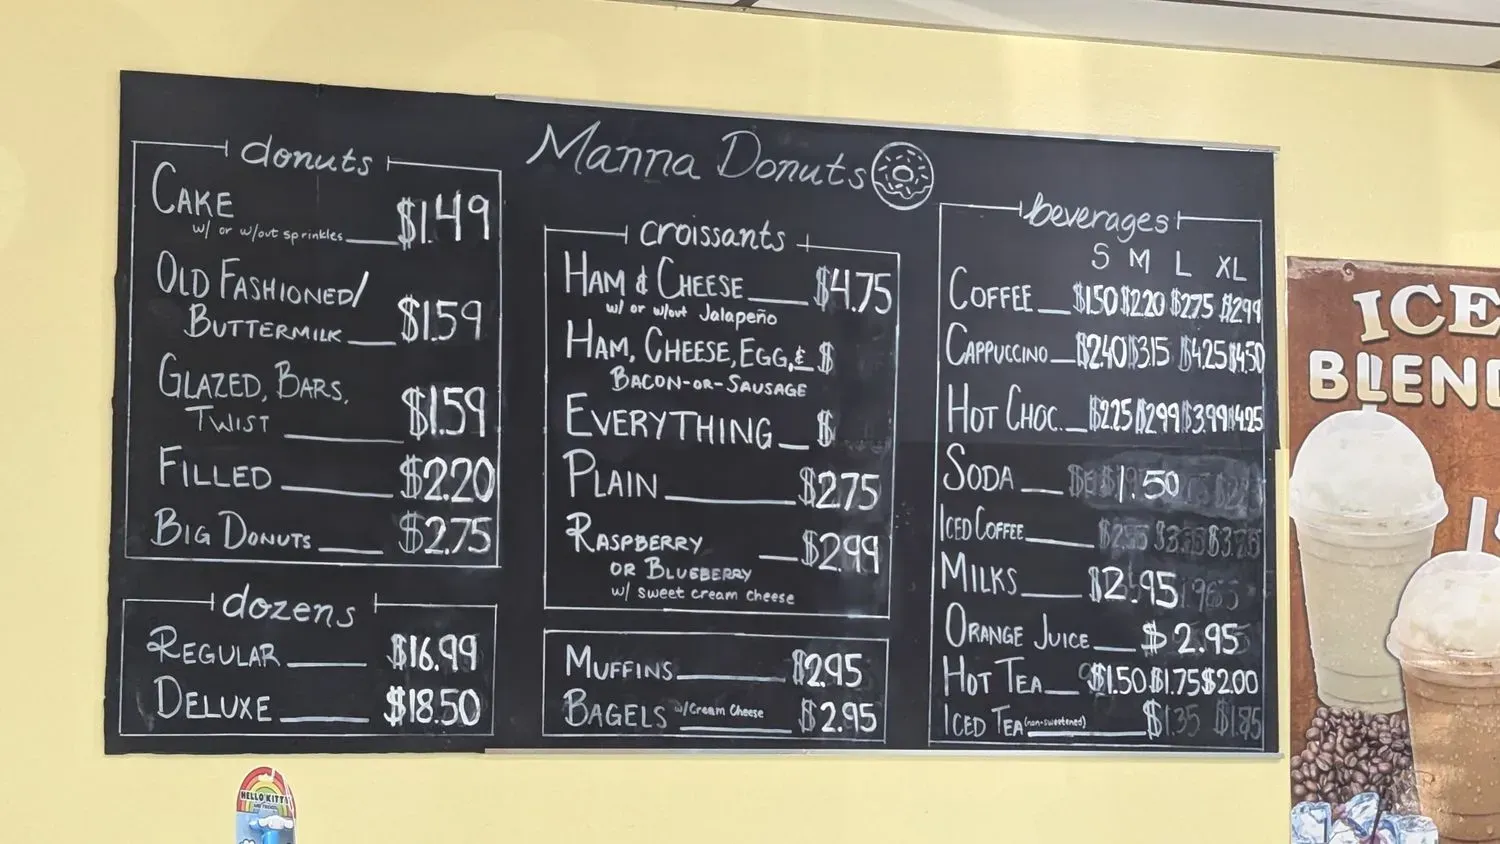 Manna Donuts
donuts
CAKE
w/ or w/out sprinkles $1.49
OLD FASHIONED/
BUTTERMILK $1.59
GLAZED, BARS,
TWIST $1.59
FILLED $2.20
BIG DONUTS $2.75
dozens
REGULAR $16.99
DELUXE $18.50
croissants
HAM & CHEESE $4.75
w/ or w/out Jalapeño
HAM, CHEESE, EGG, & $
BACON-OR-SAUSAGE
EVERYTHING $
PLAIN $2.75
RASPBERRY $2.99
OR BLUEBERRY
w/ sweet cream cheese
MUFFINS $2.95
BAGELS w/Cream Cheese $2.95
beverages
S M L XL
COFFEE $1.50 $2.20 $2.75 $2.99
CAPPUCCINO $2.40 $3.15 $4.25 $4.50
HOT CHOC. $2.25 $2.99 $3.99 $4.25
SODA 1.50
ICED COFFEE
MILKS $2.95
ORANGE JUICE $2.95
HOT TEA $1.50 $1.75 $2.00
ICED TEA (non-sweetened) $1.35 $1.85
ICE
BLEND
HELLO KITTY